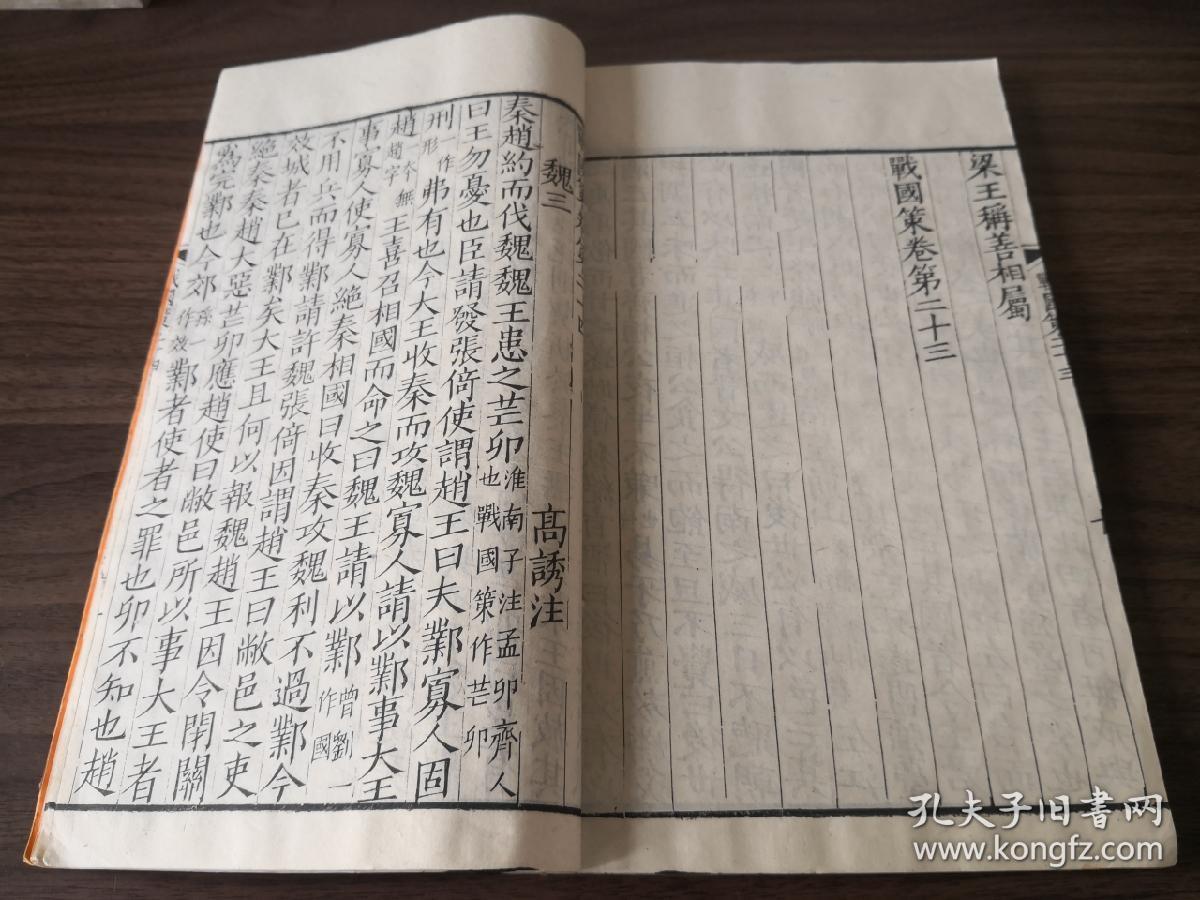 梁王稱善相屬
戰國策卷第二十三
戰國策二十三
魏三
高誘注
秦趙約而伐魏魏王患之芒卯淮南子注孟卯齊人也戰國策作芒卯
曰王勿憂也臣請發張倚使謂趙王曰夫鄴寡人固
刑作形弗有也今大王收秦而攻魏寡人請以鄴事大王
趙一本無趙字王喜召相國而命之曰魏王請以鄴曾劉一作國
事寡人使寡人絶秦相國曰收秦攻魏利不過鄴今
不用兵而得鄴請許魏張倚因謂趙王曰敝邑之吏
效城者已在鄴矣大王且何以報魏趙王因令閉關
絶秦秦趙大惡芒卯應趙使曰敝邑所以事大王者
為完鄴也今郊孫一作效鄴者使者之罪也卯不知也趙
孔夫子旧书网
www.kongfz.com